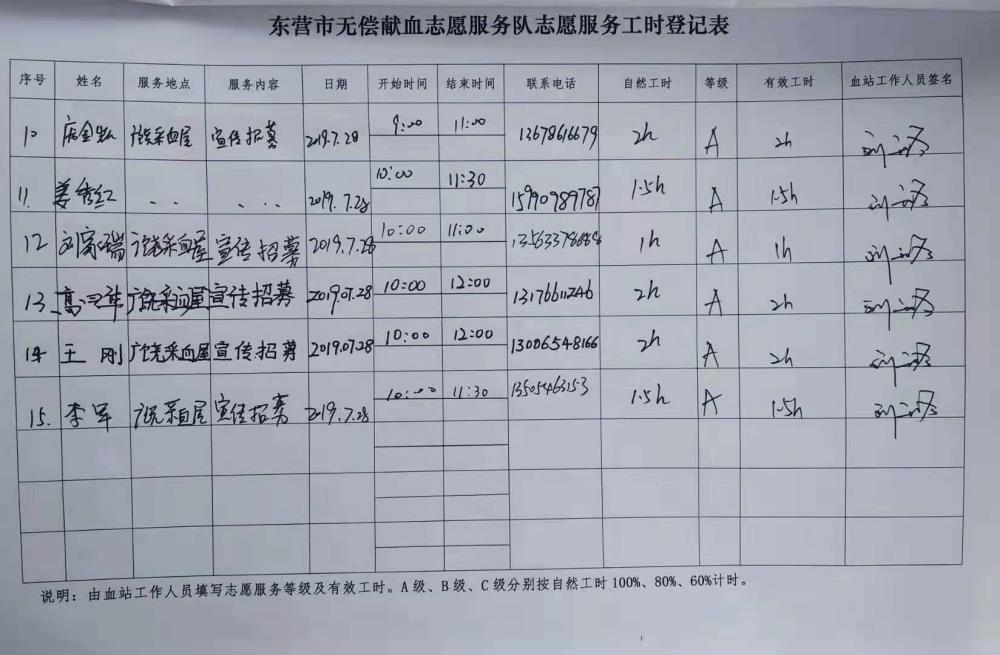 东营市无偿献血志愿服务队志愿服务工时登记表
序号 姓名 服务地点 服务内容 日期 开始时间 结束时间 联系电话 自然工时 等级 有效工时 血站工作人员签名
10 广饶采血屋 宣传招募 2019.7.28 9:00 11:00 13678616679 2h A 2h
11. 姜秀红 . . . . . 2019.7.28 10:00 11:30 15990989787 1.5h A 1.5h
12 刘家瑞 广饶采血屋 宣传招募 2019.7.28 10:00 11:00 1h A 1h
13. 广饶采血屋 宣传招募 2019.07.28 10:00 12:00 13176611246 2h A 2h
14 王刚 广饶采血屋 宣传招募 2019.07.28 10:00 12:00 13006548166 2h A 2h
15. 李军 广饶采血屋 宣传招募 2019.7.28 10:00 11:30 13505463153 1.5h A 1.5h
说明：由血站工作人员填写志愿服务等级及有效工时。A级、B级、C级分别按自然工时100%、80%、60%计时。